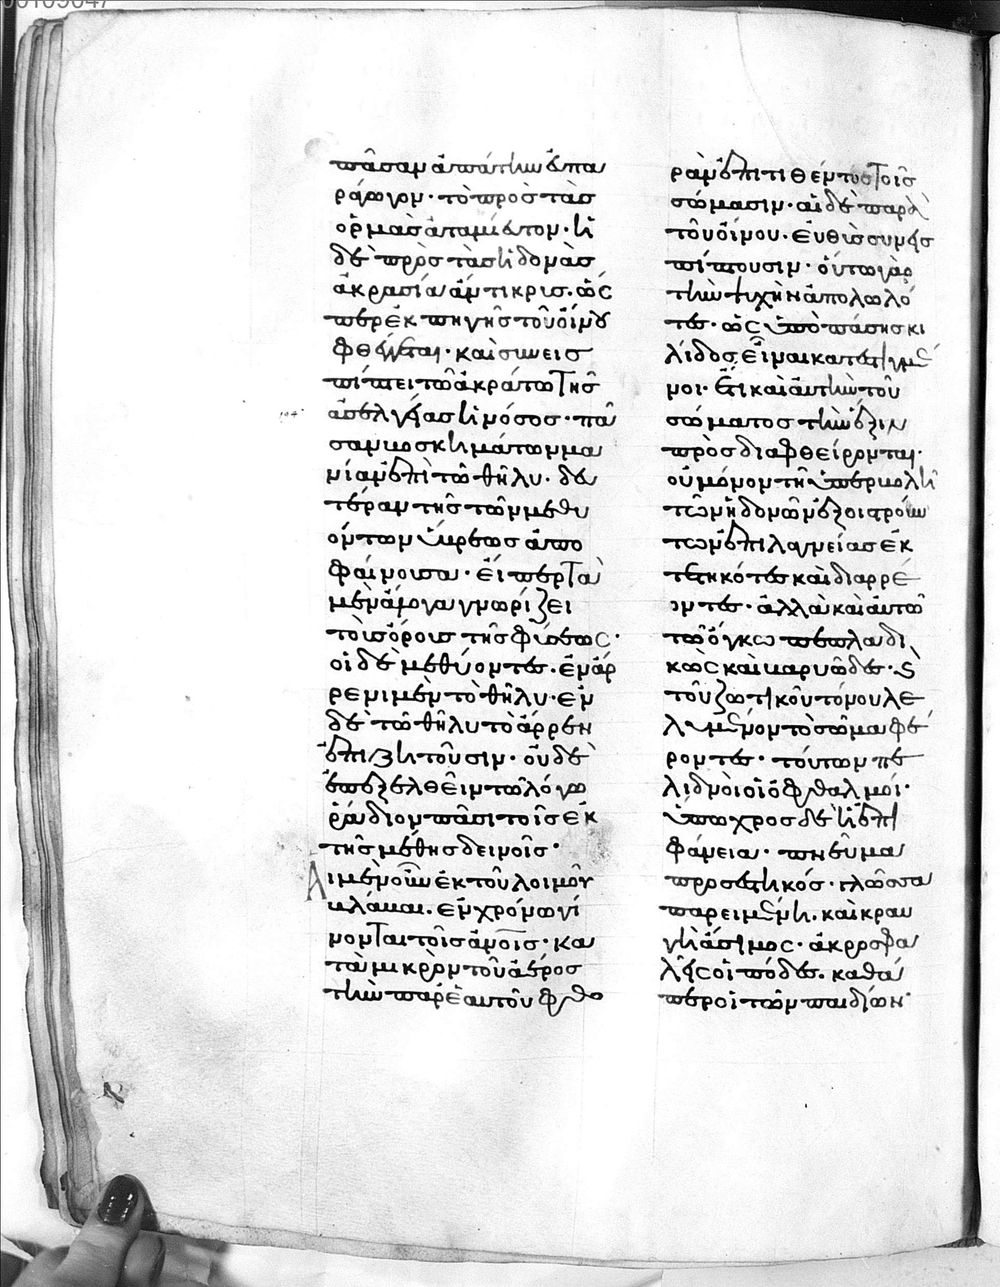 πᾶσαν ἀπάτην εὐπα
ράγωγον· τὸ πρὸς τὰς
ὁρμὰς ἀταμίευτον· ἡ
δὲ πρὸς τὰς ἡδονὰς
ἀκρασία ἄντικρυς. ὥς
περ ἐκ πηγῆς τοῦ οἴνου
φθέγγεται· καὶ συνεισ
πίπτει τῶ ἀκράτω τῆς
ἀσελγείας ἡ νόσος· πᾶ
σαν βοσκημάτων μα
νίαν ἐπὶ τῶ θῆλυ· δευ
τέραν τῆς τῶν μεθυ
όντων ὕβρεως ἀπο
φαίνουσα· εἴπερ τὰ
μὲν ἄλογα γνωρίζει
τοὺς ὅρους τῆς φύσεως·
οἱ δὲ μεθύοντες. ἐν ἄρ
ρενι μὲν τὸ θῆλυ· ἐν
δὲ τῶ θῆλυ τὸ ἄρρεν
ἐπιζητοῦσιν· οὐδὲ
ἐπεξελθεῖν τῶ λόγω
ῥάδιον πᾶσι τοῖς ἐκ
τῆς μέθης δεινοῖς·
Αἱ μὲν οὖν ἐκ τοῦ λοιμοῦ
βλάβαι. ἐν χρόνω γί
νονται τοῖς ἀνοις· κα
τὰ μικρὸν τοῦ ἀέρος
τὴν παρ' ἑαυτοῦ φθο
ρὰν ἐπιτιθέντος τοῖς
σώμασιν· αἱ δὲ παρὰ
τοῦ οἴνου. εὐθὺς συνεισ
πίπτουσιν· οὕτω γὰρ
τὴν ψυχὴν ἀπολωλό
τες. ὡς ὑπὸ πάσης κη
λίδος εἶναι κατεστιγμέ
νοι· ἔτι καὶ αὐτὴν τοῦ
σώματος τὴν ἕξιν
προσδιαφθείρονται·
οὐ μόνον τῆ ὑπερβολῆ
τῶν ἡδονῶν ἐξοιστρούν
των ἐπὶ λαγνείας ἐκ
τετηκότες καὶ διαρρέ
οντες. ἀλλὰ καὶ αὐτῶ
τῶ ὄγκω πεπλαδη
κὼς καὶ κάρυῶδες· ς
τοῦ ζωτικοῦ τόνου λε
λυμένον τὸ σῶμα φέ
ροντες· τούτων πε
λιδνοὶ οἱ ὀφθαλμοί·
ὕπωχρος δὲ ἡ ἐπι
φάνεια· πνεῦμα
προσετηκός· γλῶσσα
παρειμένη. καὶ κραυ
γὴ ἄσημος· ἀκροσφα
λεῖς οἱ πόδες. καθά
περ οἱ τῶν παιδίων·